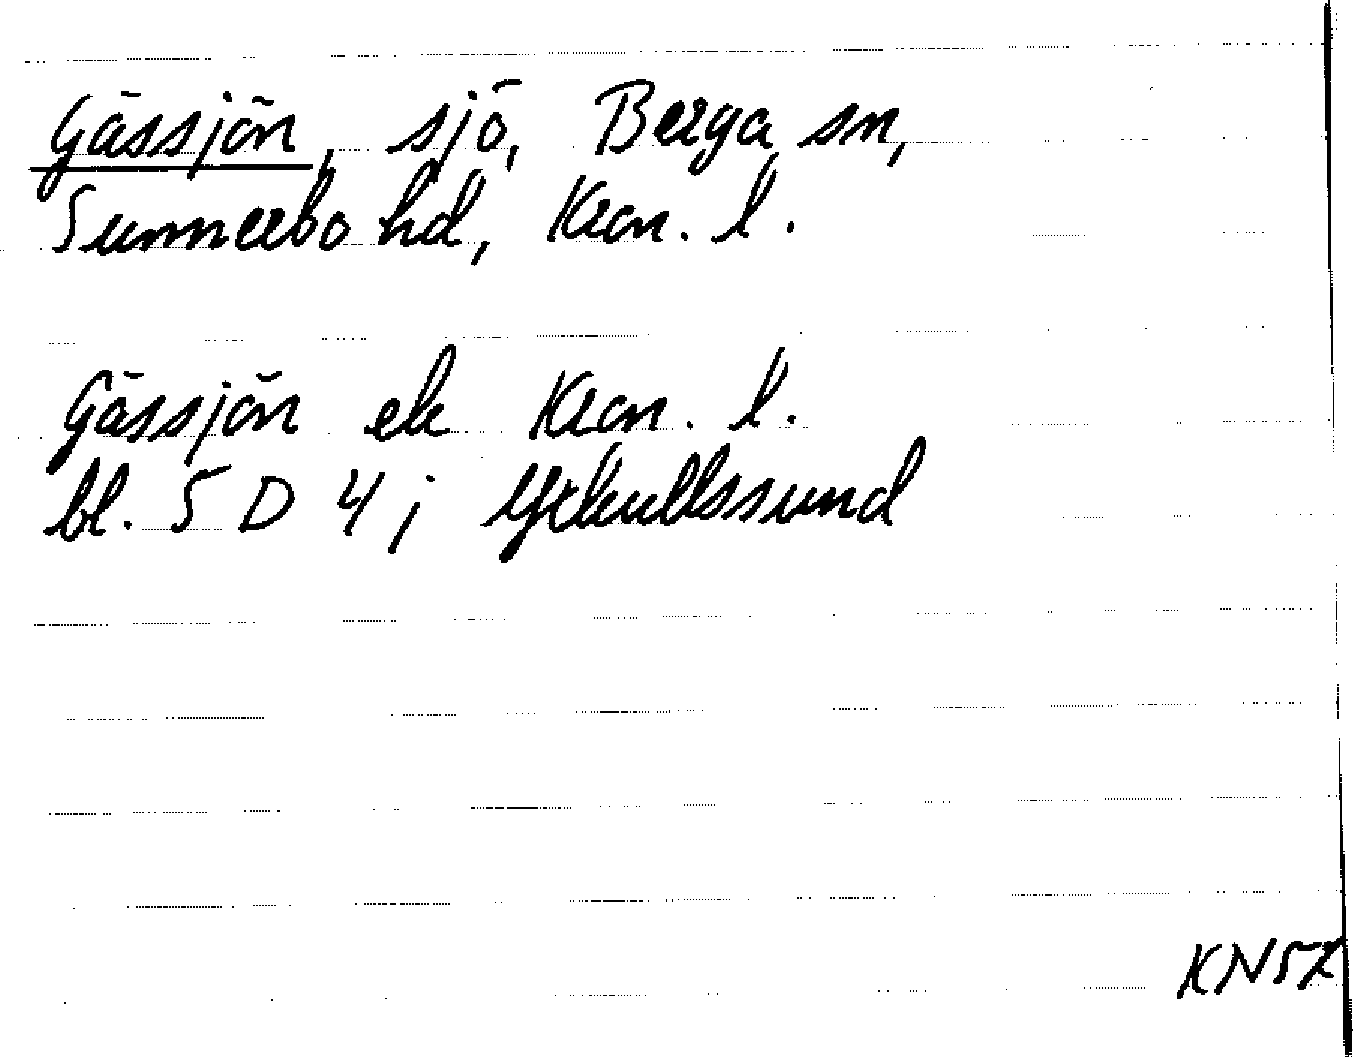 Gässjön, sjö, Berga sn,
Sunnerbo hd, Kron. l.
Gässjön ek Kron. l.
bl. 5 D 4 j Yxkullssund